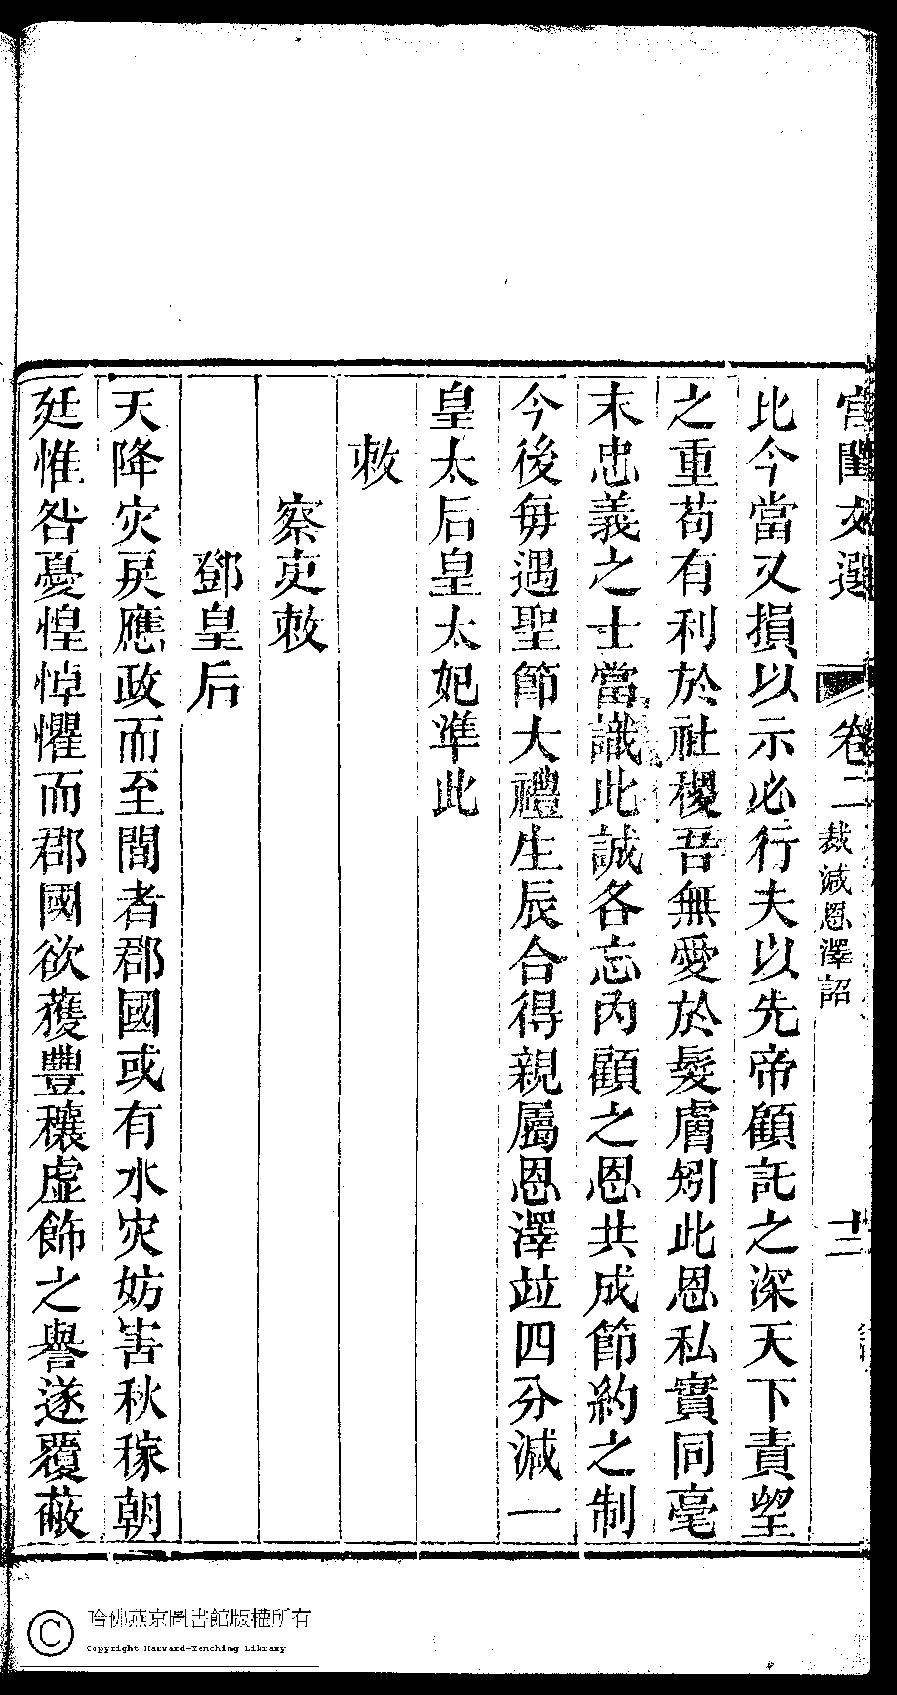 宮閨文選 卷二 裁減恩澤詔 十二
比今當又損以示必行夫以先帝顧託之深天下責望
之重苟有利於社稷吾無愛於髮膚矧此恩私實同毫
末忠義之士當識此誠各忘內顧之恩共成節約之制
今後毎遇聖節大禮生辰合得親屬恩澤竝四分減一
皇太后皇太妃準此
敕
察吏敕
鄧皇后
天降灾戾應政而至間者郡國或有水灾妨害秋稼朝
廷惟咎憂惶悼懼而郡國欲獲豐穰虛飾之譽遂覆蔽
哈佛燕京圖書館版權所有
Copyright Harvard-Yenching Library